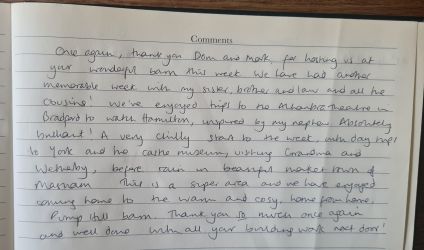 Comments
Once again, thank you Dom and Mark, for hosting us at
your wonderful barn this week. We have had another
memorable week with my sister, brother and law and all the
cousins! We've enjoyed trips to the Alhambra Theatre in
Bradford to watch Hamilton, inspired by my nephew. Absolutely
brilliant! A very chilly start to the week, with day trips
to York and the castle museum, visiting Grandma and
Wetherby, before rain in beautiful market town of
Masham. This is a super area and we have enjoyed
coming home to the warm and cosy, home from home,
Pump Hill barn. Thank you so much once again
and well done with all your building work next door!